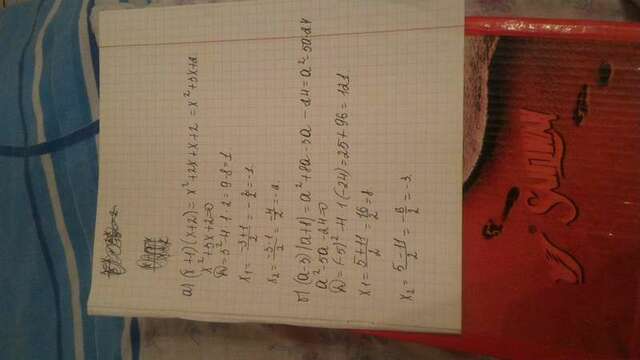 а) (x+1)(x+2) = x²+2x+x+2 = x²+3x+2
x²+3x+2=0
D=3²-4·1·2=9-8=1
x₁ = (-3+1)/2 = -2/2 = -1.
x₂ = (-3-1)/2 = -4/2 = -2.
б) (a-3)(a+8) = a²+8a-3a-24 = a²-5a-24
a²-5a-24=0
D=(-5)²-4·1(-24)=25+96=121
x₁ = (5+11)/2 = 16/2 = 8
x₂ = (5-11)/2 = -6/2 = -3.